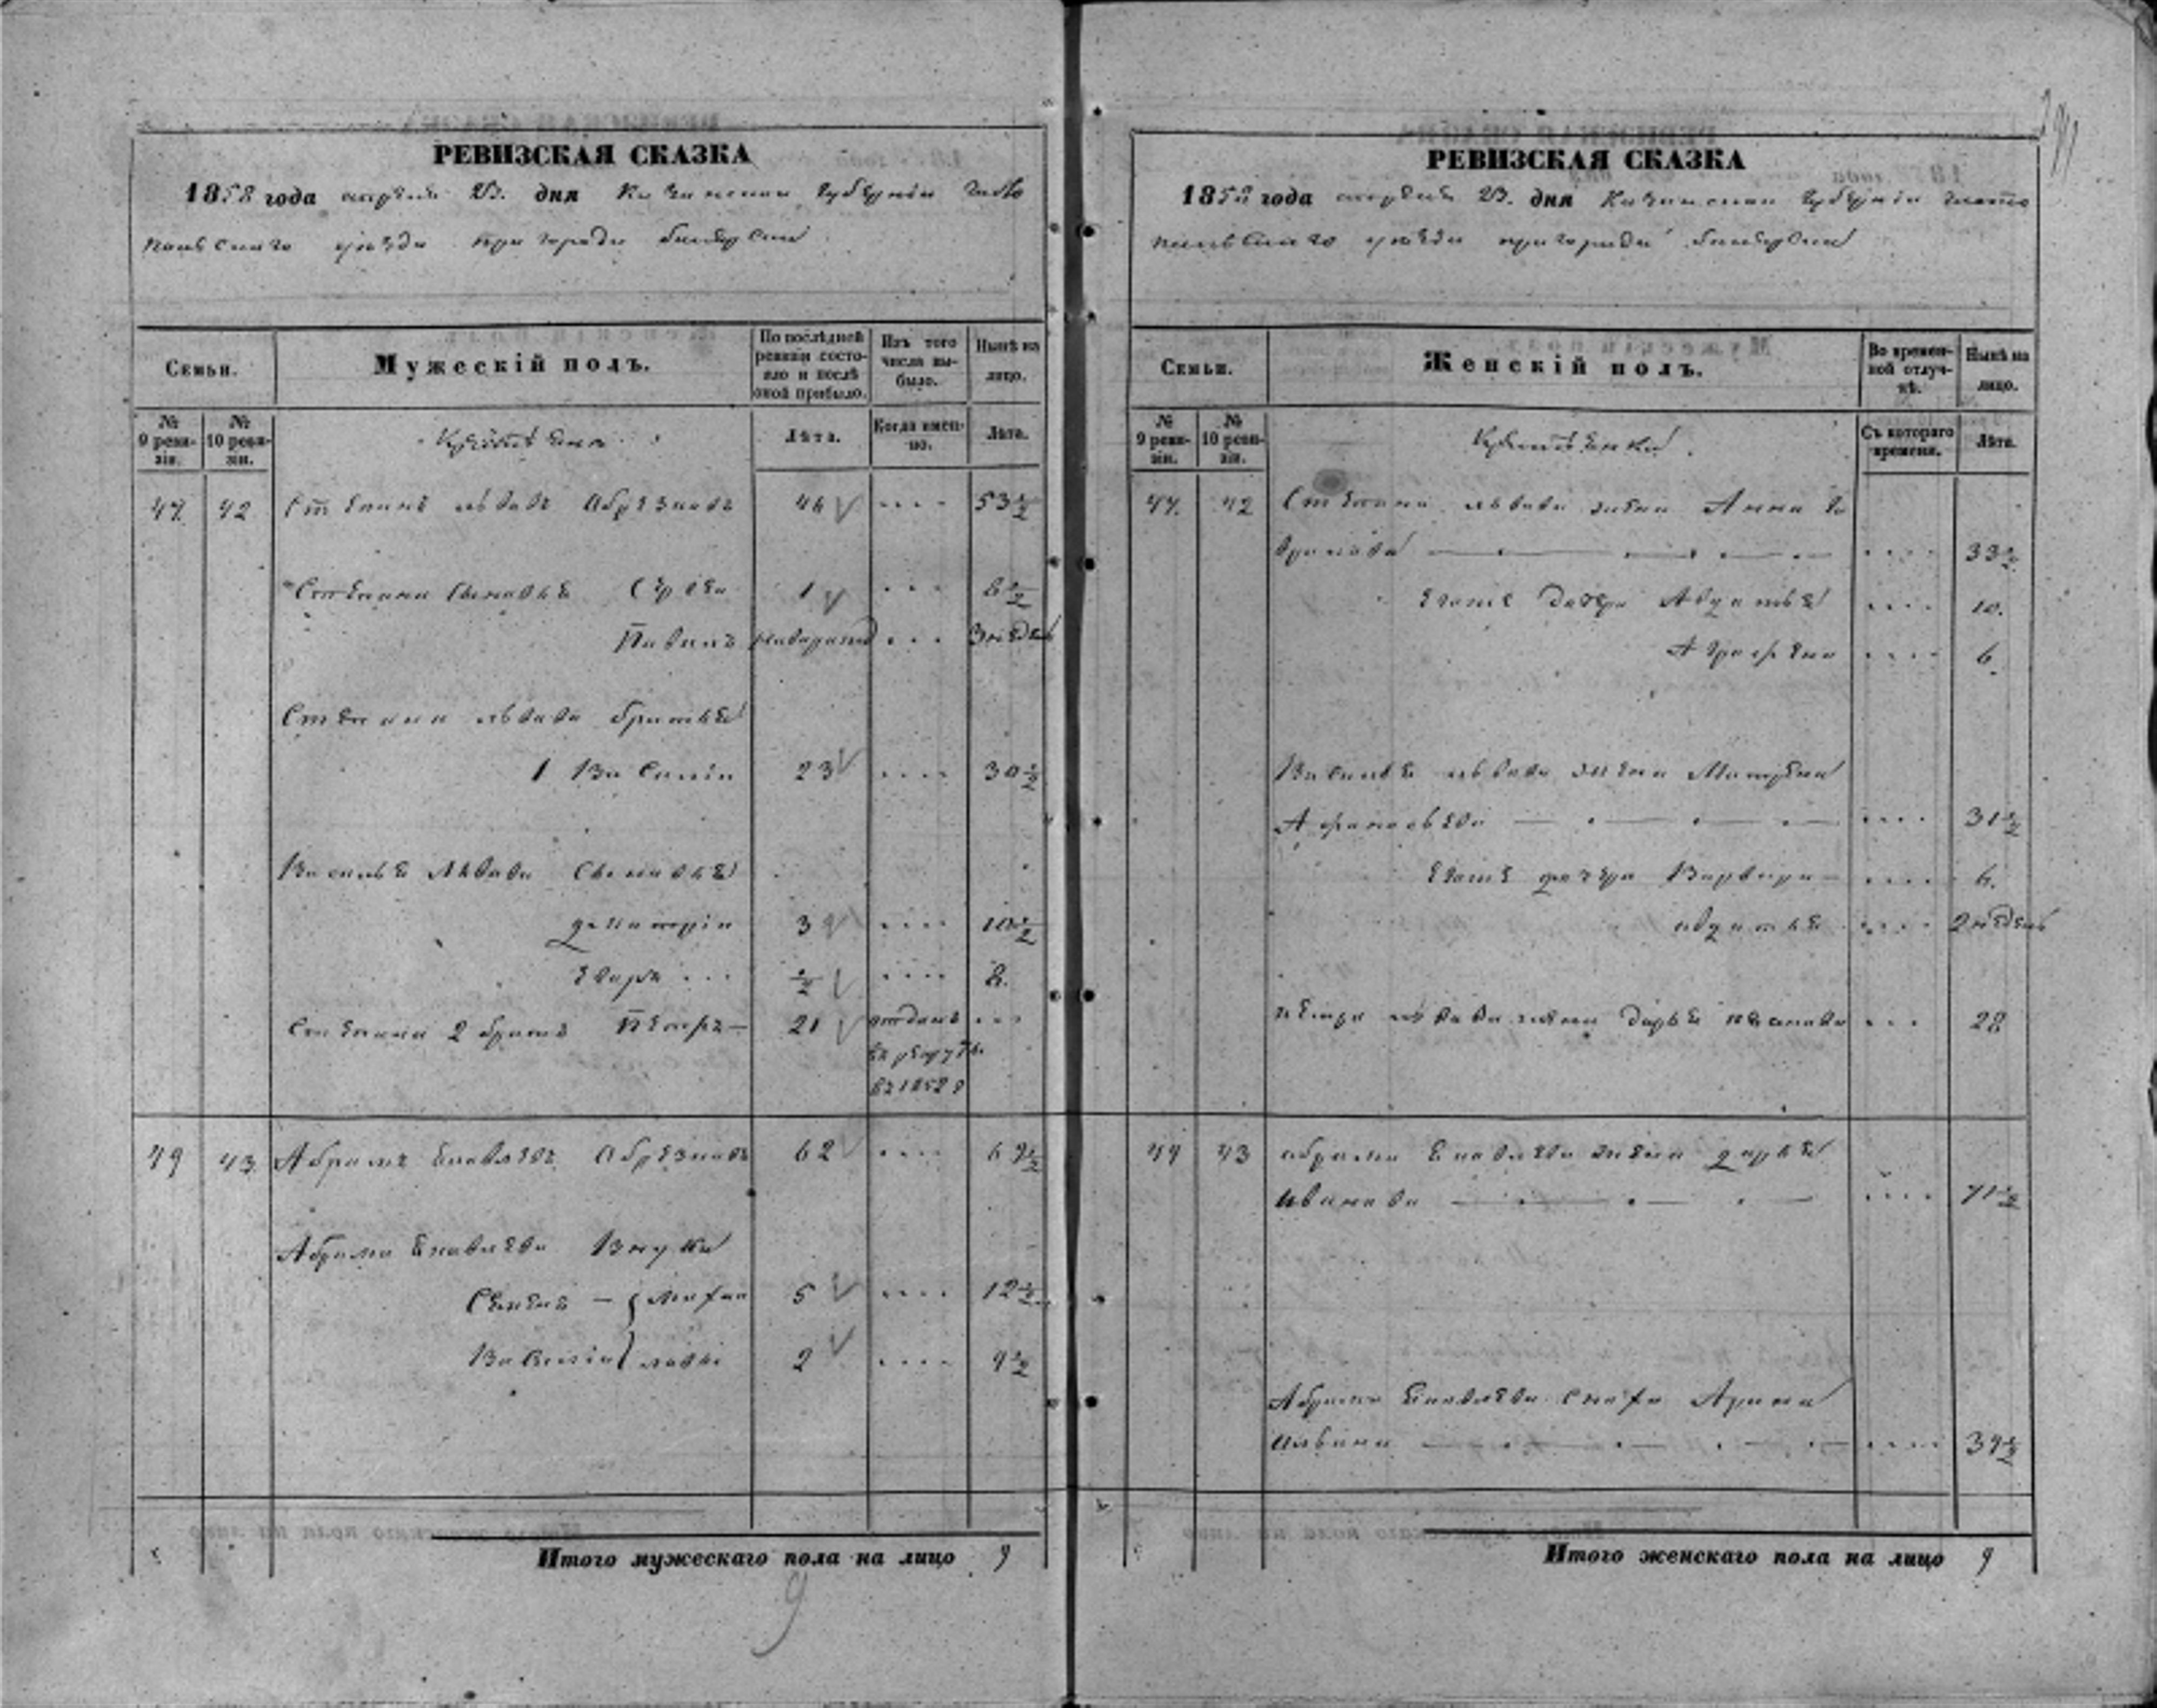 РЕВИЗСКАЯ СКАЗКА
1858 года апреля 23. дня Казанской Губернии Чисто
польскаго уезда пригорода Билярска
Семьи.
Мужескій полъ.
По послѣдней ревизіи состояло и послѣ оной прибыло.
Изъ того числа выбыло.
Нынѣ на лицо.
№ 9 ревизіи.
№ 10 ревизіи.
Лѣта.
Когда именно.
Лѣта.
47 42 Степанъ львовъ Обрезковъ 46 53½
Степана сыновья Сергеи 1 8½
Иванъ новорожд 3 недель
Степана львова братья
1 Василiи 23 30½
Василья львова сыновья
дмитрiи 3 10½
Егоръ ½ 8.
Степана 2 братъ Петръ 21 отданъ
въ рекруты
въ 1852 г
49 43 Абрамъ Яковлевъ Обрезковъ 62 69½
Абрама Яковлева Внуки
Семенъ Михаи 5 12½
Василiи ловы 2 9½
Итого мужескаго пола на лицо 9
9
РЕВИЗСКАЯ СКАЗКА
1858 года апреля 23. дня Казанской Губернiи Чисто
польскаго уезда пригорода Билярска
Семьи.
Женскій полъ.
Во временной отлучкѣ.
Нынѣ на лицо.
№ 9 ревизіи.
№ 10 ревизіи.
Съ котораго времени.
Лѣта.
47. 42 Степана львова жена Анна
33½
Егоже дочери Авдотья 10.
Аграфена 6.
Василья львова жена Матрена
Афанасьева 31½
Егоже дочери Варвара 6.
авдотья 2 недель
петра львова жена дарья 28
49 43 абрама Яковлева жена дарья
иванова 71½
Абрама Яковлева сноха Арина
ильина 39½
Итого женскаго пола на лицо 9